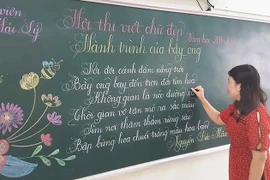 viên
Hải Lý
Hội thi viết chữ đẹp
Năm học 201
Hành trình của bầy ong
Với đôi cánh đẫm nắng trời
Bầy ong bay đến trọn đời tìm hoa
Không gian là nẻo đường xa
Thời gian vô tận mở ra sắc màu
Tìm nơi thăm thẳm rừng sâu
Bập bùng hoa chuối trắng màu hoa ban
Nguyễn Đức Mậu